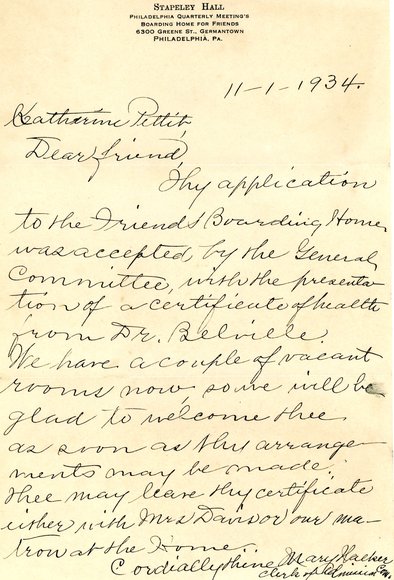 STAPELEY HALL
PHILADELPHIA QUARTERLY MEETING'S
BOARDING HOME FOR FRIENDS
6300 GREENE ST., GERMANTOWN
PHILADELPHIA, PA.
11-1-1934.
Katharine Pettit,
Dear friend,
Thy application
to the Friends Boarding Home
was accepted, by the General
Committee, with the presenta-
tion of a certificate of health
from Dr. Belville.
We have a couple of vacant
rooms now, so we will be
glad to welcome thee
as soon as thy arrange-
ments may be made.
Thee may leave thy certificate
either with Mrs Davis or our ma-
tron at the Home.
Cordially thine Mary
Clerk of Com.